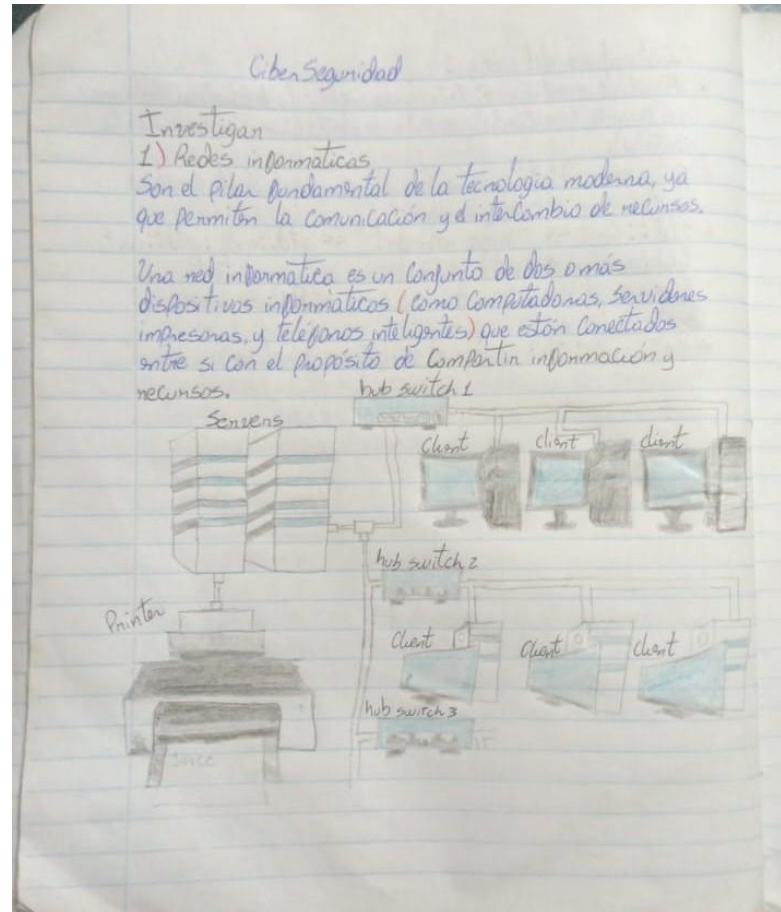 Ciber Seguridad
Investigar
1) Redes informaticas
Son el pilar fundamental de la tecnologia moderna, ya
que permiten la comunicación y el intercambio de recursos.
Una red informatica es un conjunto de dos o más
dispositivos informaticos (como computadoras, servidores
impresoras, y teléfonos inteligentes) que están conectados
entre si con el propósito de compartir información y
recursos.
hub switch 1
Servers
client client client
hub switch 2
Printer
client client client
hub switch 3